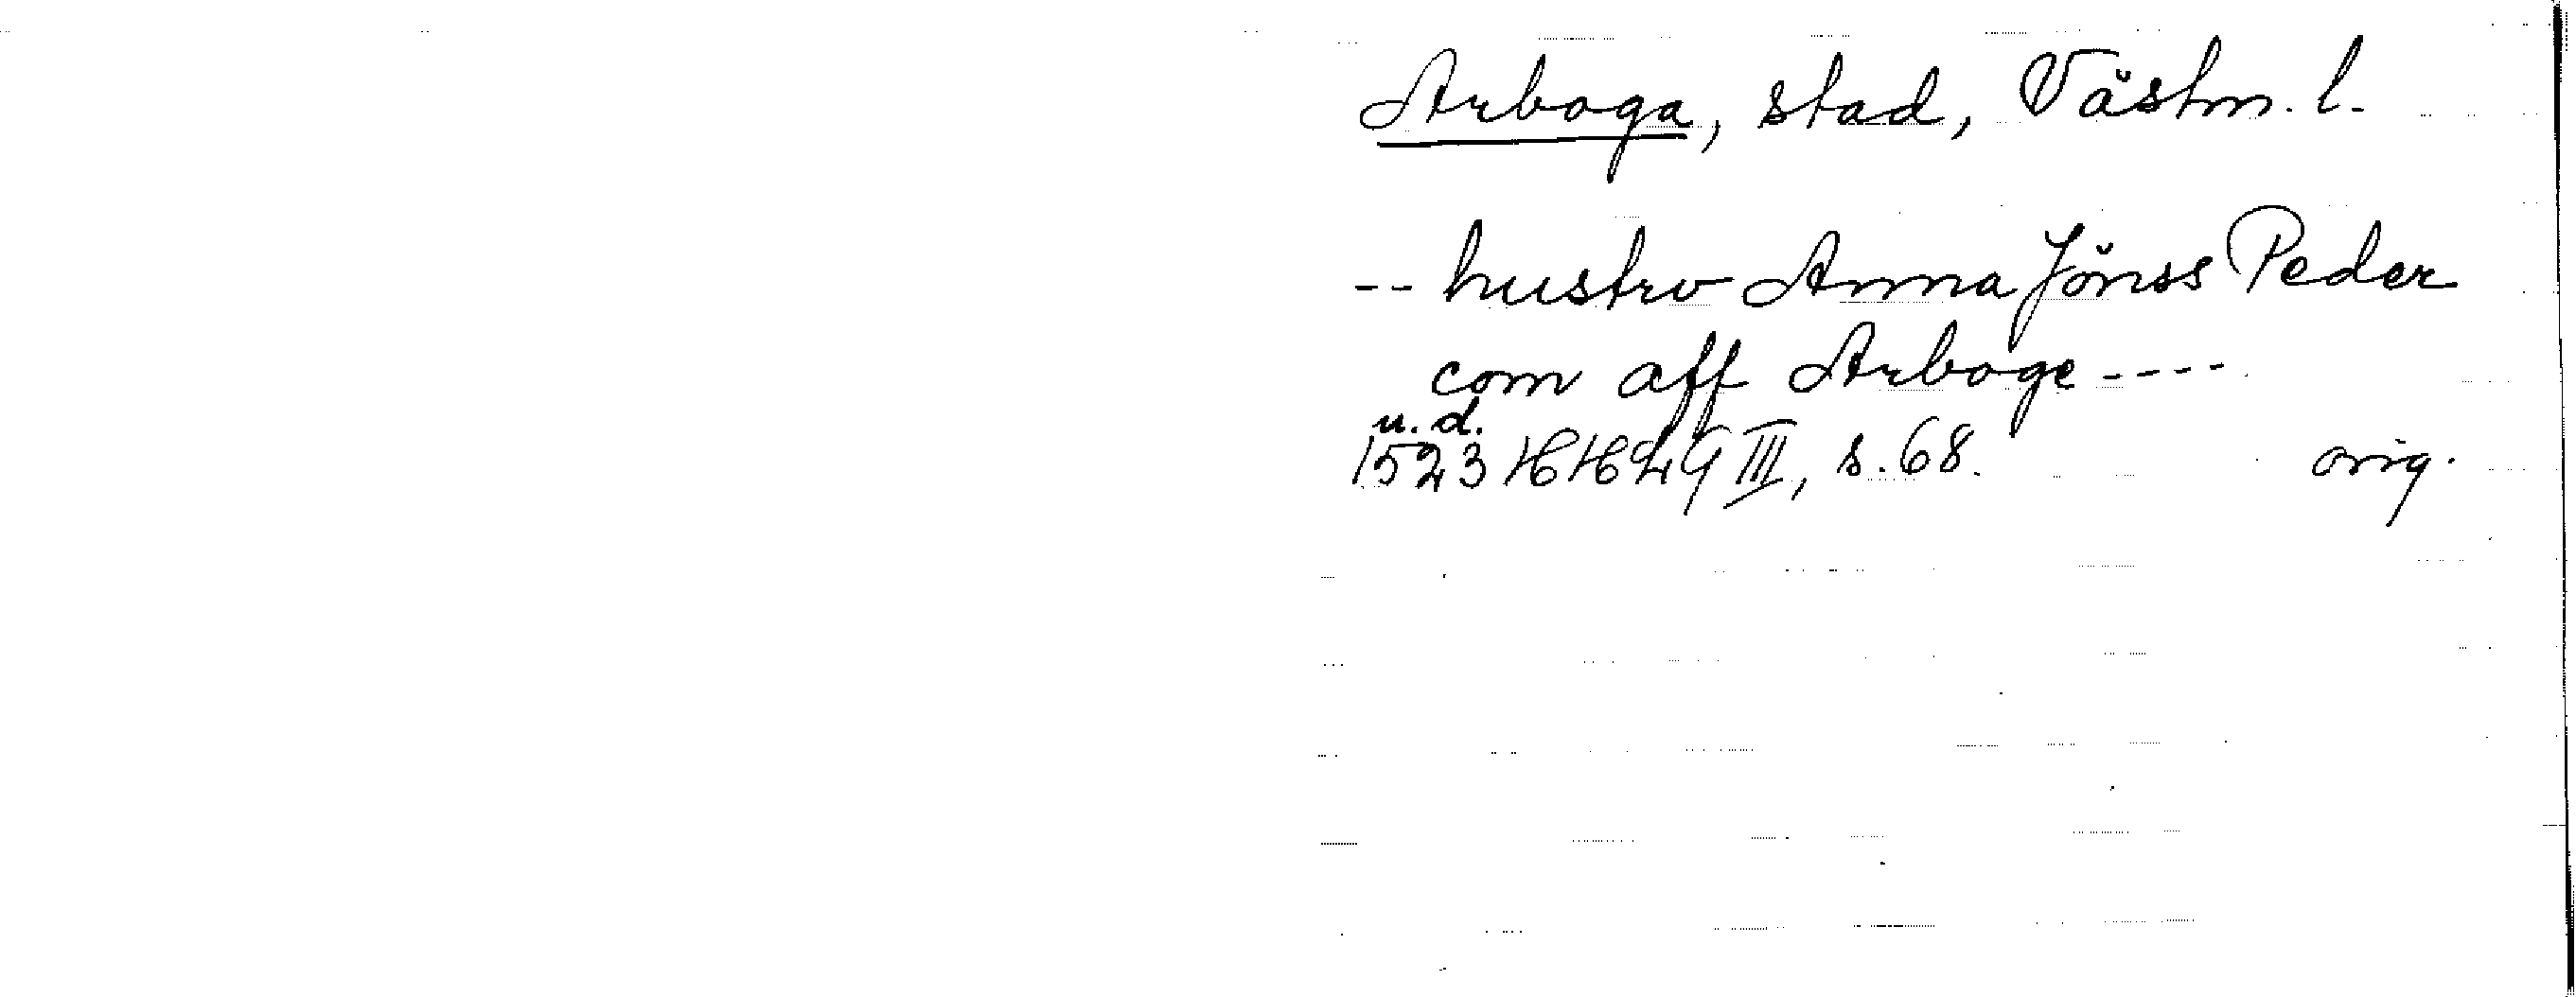 Arboga, stad, Västm. l.
-- hustrv Anna Jönss Peder
com aff Arboge ----
u. d.
1523 HH 24 III, s. 68. orig.